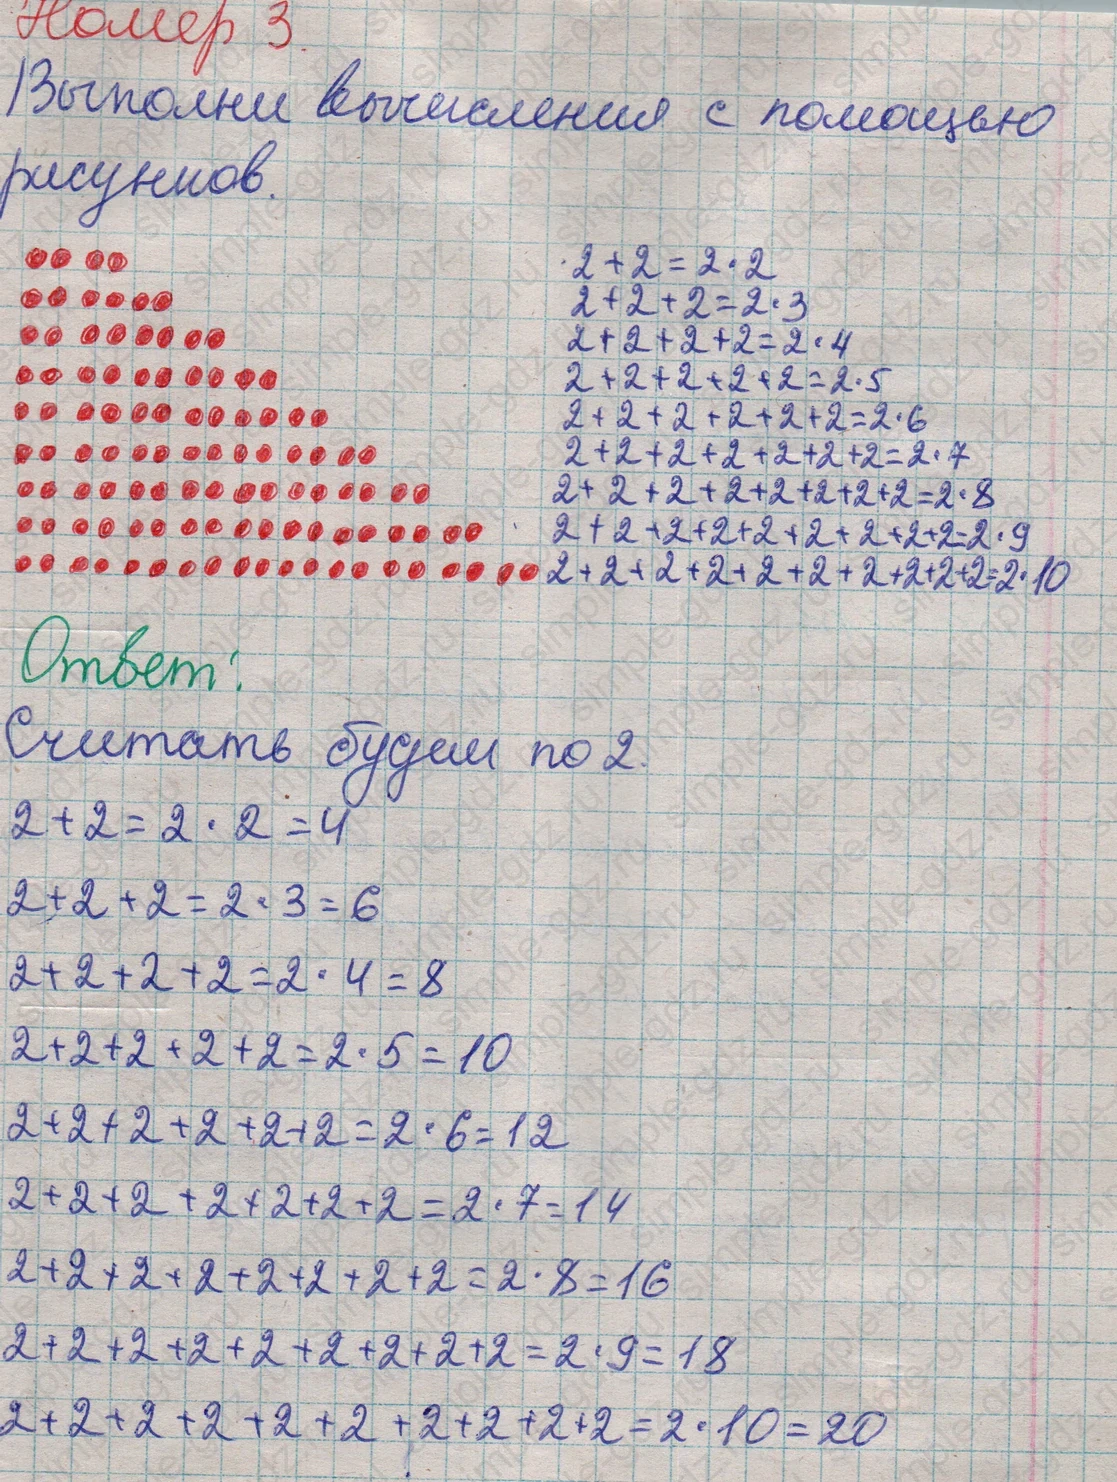 Номер 3.
Выполни вычисления с помощью
рисунков.
2+2=2·2
2+2+2=2·3
2+2+2+2=2·4
2+2+2+2+2=2·5
2+2+2+2+2+2=2·6
2+2+2+2+2+2+2=2·7
2+2+2+2+2+2+2+2=2·8
2+2+2+2+2+2+2+2+2=2·9
2+2+2+2+2+2+2+2+2+2=2·10
Ответ:
Считать будем по 2.
2+2=2·2=4
2+2+2=2·3=6
2+2+2+2=2·4=8
2+2+2+2+2=2·5=10
2+2+2+2+2+2=2·6=12
2+2+2+2+2+2+2=2·7=14
2+2+2+2+2+2+2+2=2·8=16
2+2+2+2+2+2+2+2+2=2·9=18
2+2+2+2+2+2+2+2+2+2=2·10=20
simple-gdz.ru